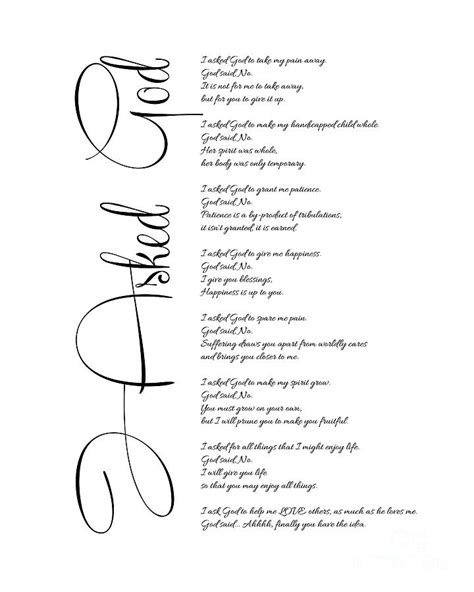 I Asked God
I asked God to take my pain away.
God said, No.
It is not for me to take away,
but for you to give it up.
I asked God to make my handicapped child whole.
God said, No.
Her spirit was whole,
her body was only temporary.
I asked God to grant me patience.
God said, No.
Patience is a by-product of tribulations,
it isn't granted, it is earned.
I asked God to give me happiness.
God said, No.
I give you blessings,
Happiness is up to you.
I asked God to spare me pain.
God said, No.
Suffering draws you apart from worldly cares
and brings you closer to me.
I asked God to make my spirit grow.
God said, No.
You must grow on your own,
but I will prune you to make you fruitful.
I asked for all things that I might enjoy life.
God said, No.
I will give you life
so that you may enjoy all things.
I ask God to help me LOVE others, as much as he loves me.
God said... Ahhhh, finally you have the idea.